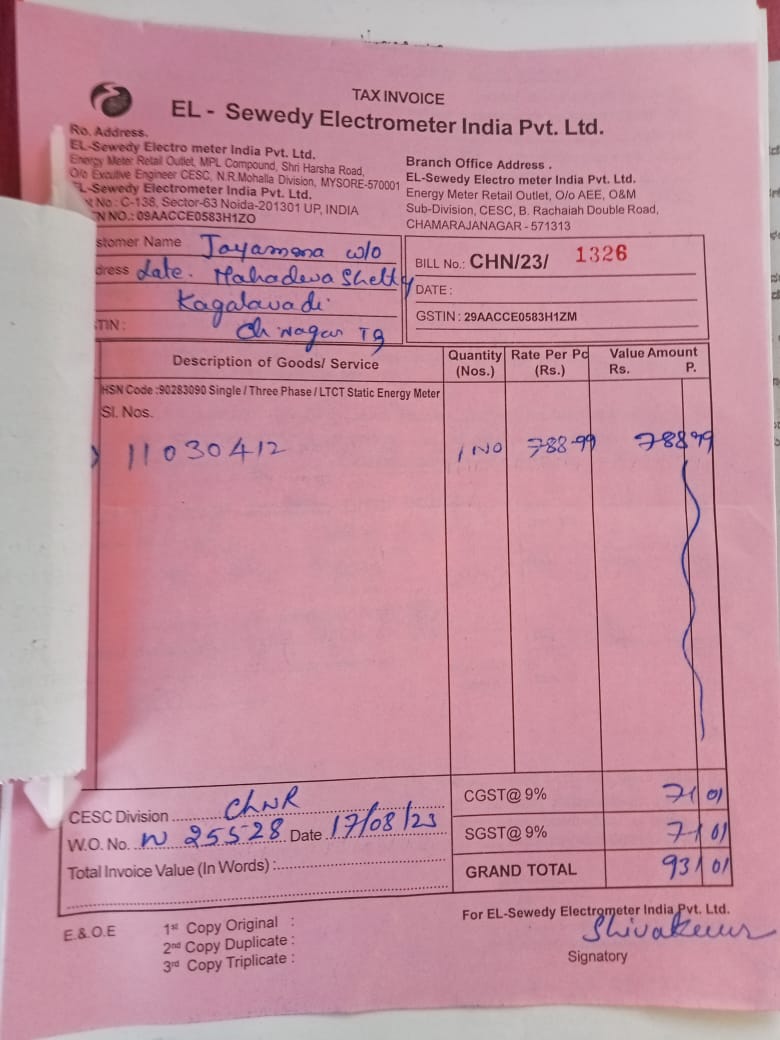 TAX INVOICE
EL - Sewedy Electrometer India Pvt. Ltd.
Ro. Address.
EL-Sewedy Electro meter India Pvt. Ltd.
Energy Meter Retail Outlet, MPL Compound, Shri Harsha Road,
O/o Excutive Engineer CESC, N.R.Mohalla Division, MYSORE-570001
EL-Sewedy Electrometer India Pvt. Ltd.
No : C-138, Sector-63 Noida-201301 UP, INDIA
N NO.: 09AACCE0583H1ZO
Branch Office Address .
EL-Sewedy Electro meter India Pvt. Ltd.
Energy Meter Retail Outlet, O/o AEE, O&M
Sub-Division, CESC, B. Rachaiah Double Road,
CHAMARAJANAGAR - 571313
stomer Name Jayamma w/o
dress late. Mahadeva Shetty
Kagalavadi
TIN : Ch. Nagar Tq
BILL No.: CHN/23/ 1326
DATE :
GSTIN : 29AACCE0583H1ZM
Description of Goods/ Service Quantity (Nos.) Rate Per Pc (Rs.) Value Amount Rs. P.
HSN Code :90283090 Single / Three Phase / LTCT Static Energy Meter
Sl. Nos.
11030412 1 NO 788-99 788 99
CESC Division CHNR
W.O. No. N 25528 Date 17/08/23
Total Invoice Value (In Words) :
CGST@ 9% 71 01
SGST@ 9% 71 01
GRAND TOTAL 931 01
E.& O.E
1st Copy Original :
2nd Copy Duplicate :
3rd Copy Triplicate :
For EL-Sewedy Electrometer India Pvt. Ltd.
Shivakumar
Signatory